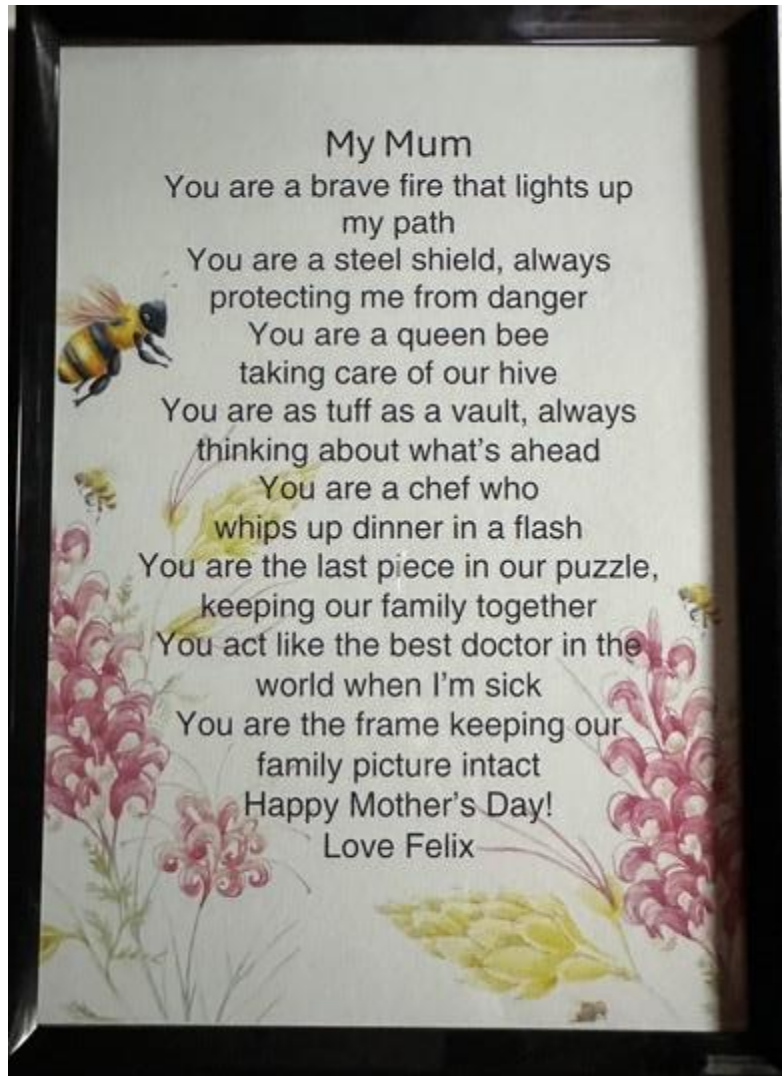 My Mum
You are a brave fire that lights up
my path
You are a steel shield, always
protecting me from danger
You are a queen bee
taking care of our hive
You are as tuff as a vault, always
thinking about what's ahead
You are a chef who
whips up dinner in a flash
You are the last piece in our puzzle,
keeping our family together
You act like the best doctor in the
world when I'm sick
You are the frame keeping our
family picture intact
Happy Mother's Day!
Love Felix